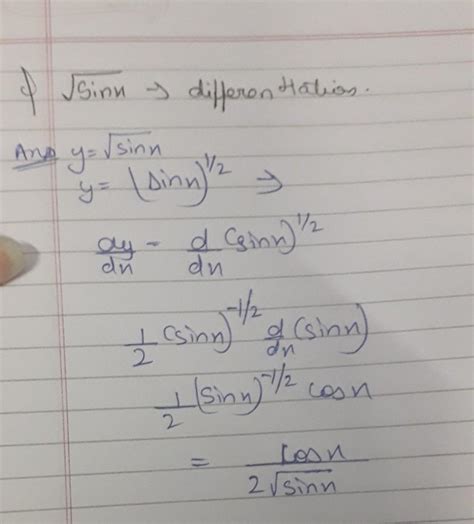 Q √sinx → differentiation.
Ans y = √sinx
y = (sinx)^1/2 ⇒
dy/dx - d/dx (sinx)^1/2
1/2 (sinx)^-1/2 d/dx (sinx)
1/2 (sinx)^-1/2 cosx
= cosx / 2√sinx